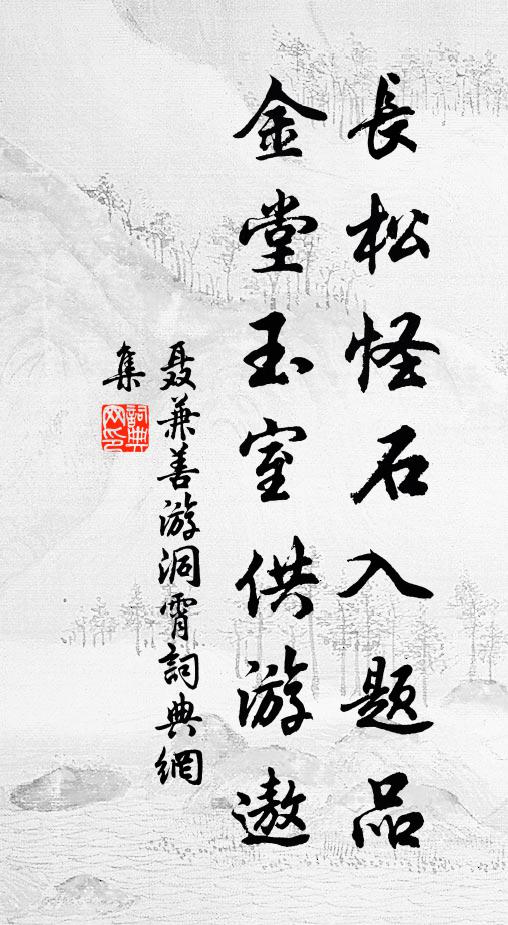 長松怪石入题品
金堂玉室供游遨
聂兼善游洞霄詞典網
集
詞典网印